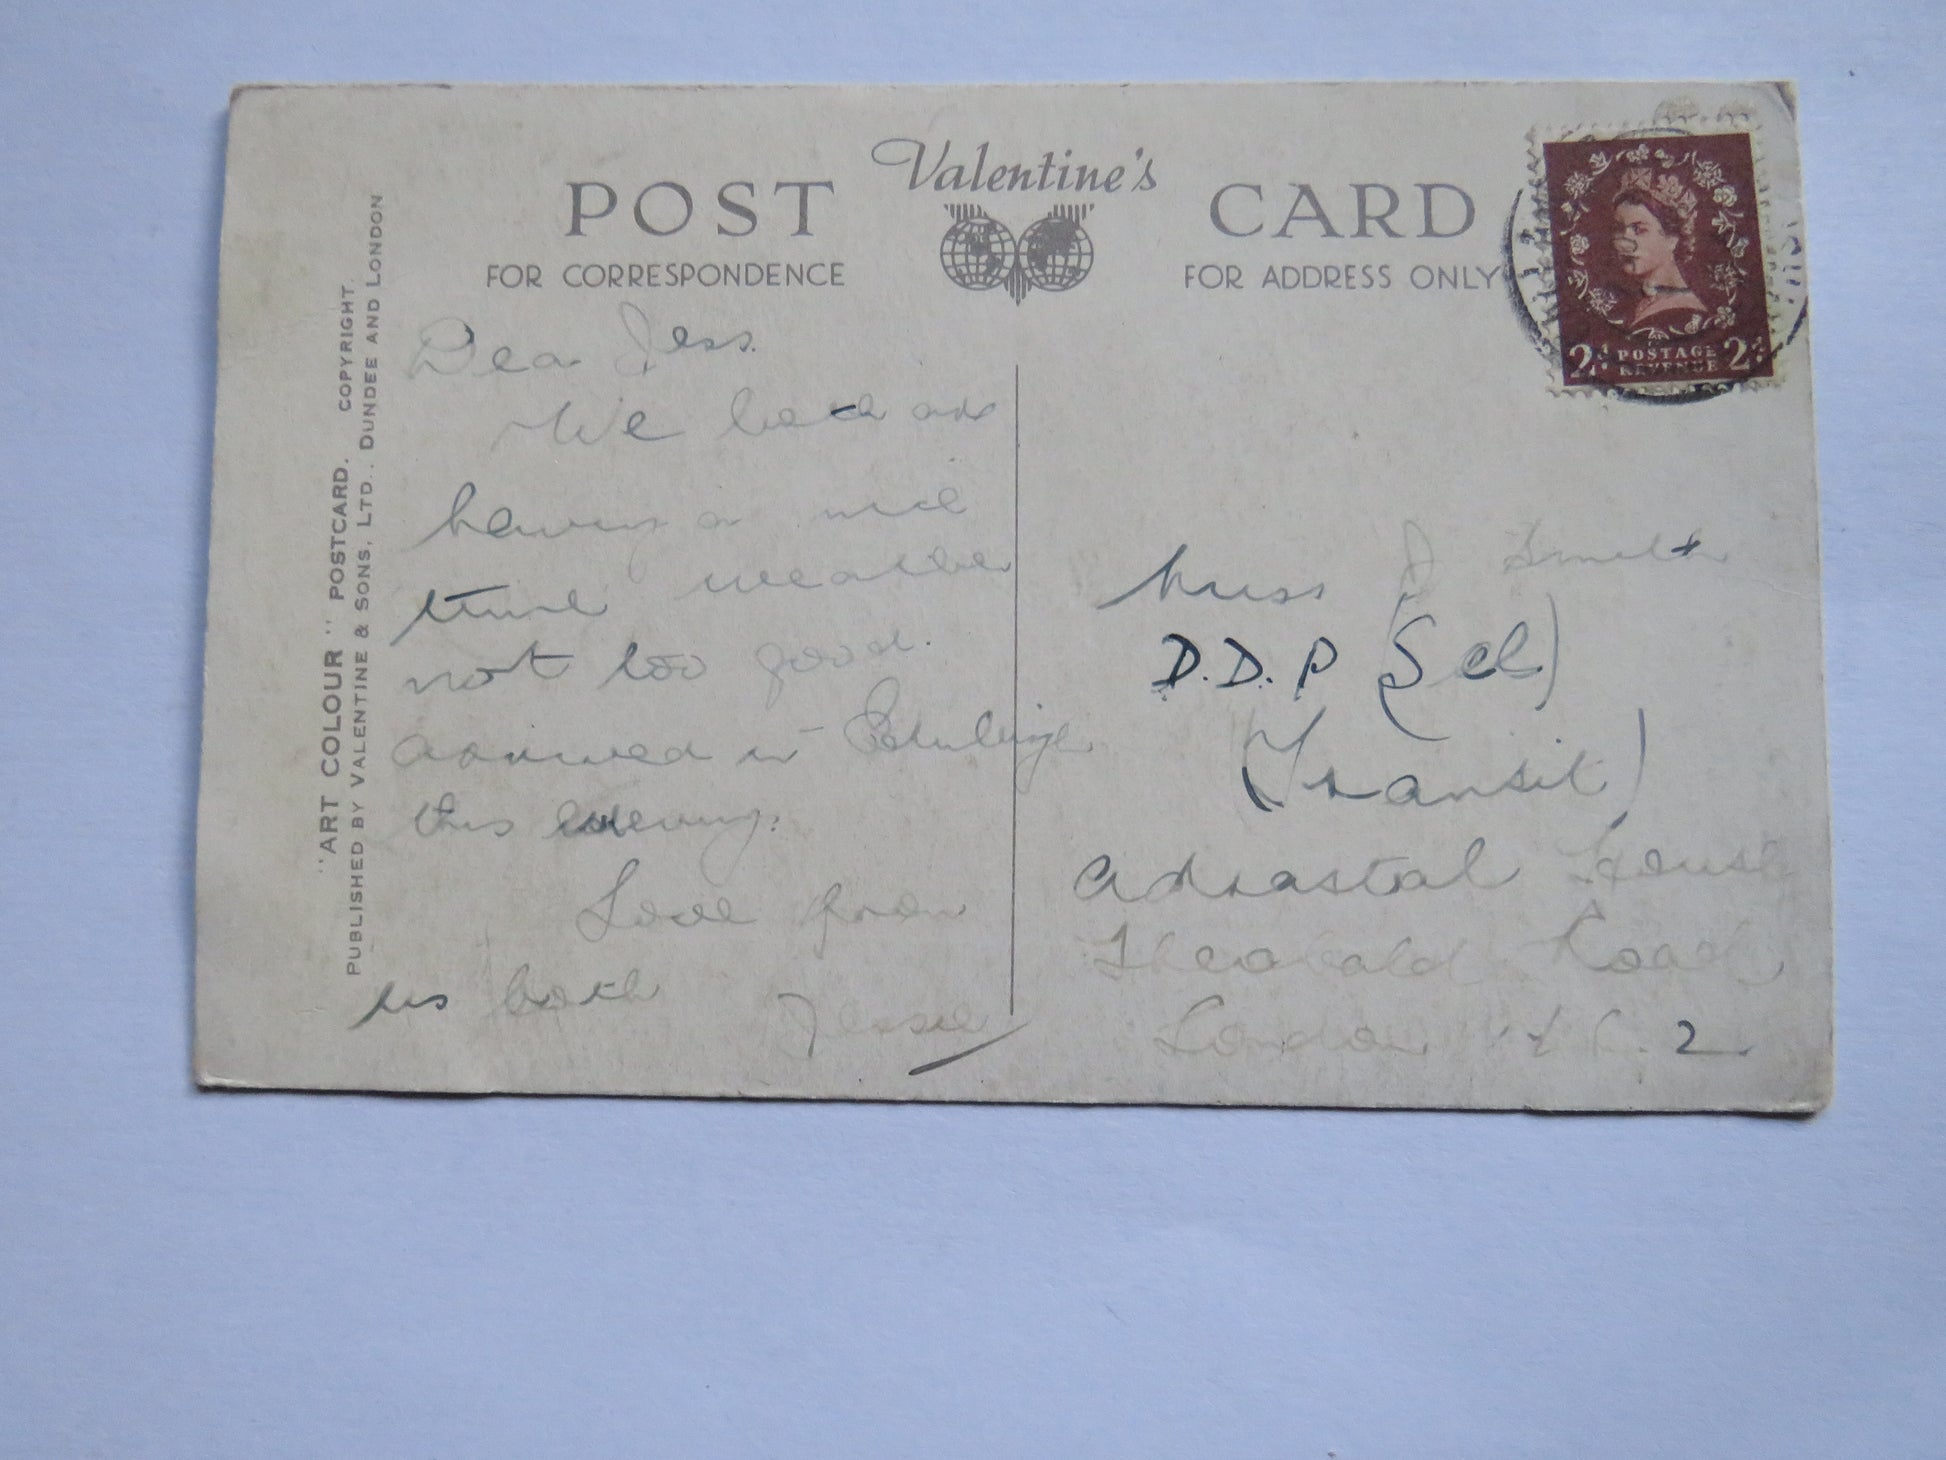 POST Valentine's CARD
FOR CORRESPONDENCE
FOR ADDRESS ONLY
2D POSTAGE REVENUE 2D
"ART COLOUR" POSTCARD. COPYRIGHT.
PUBLISHED BY VALENTINE & SONS, LTD., DUNDEE AND LONDON
Dear Jess.
We both are
having a nice
time weather
not too good.
arrived in
this evening.
Love from
us both Jessie
Miss J Smith
D.D.P (Sel)
(Transit)
Adrastal House
Theobald Road
London W.C.2